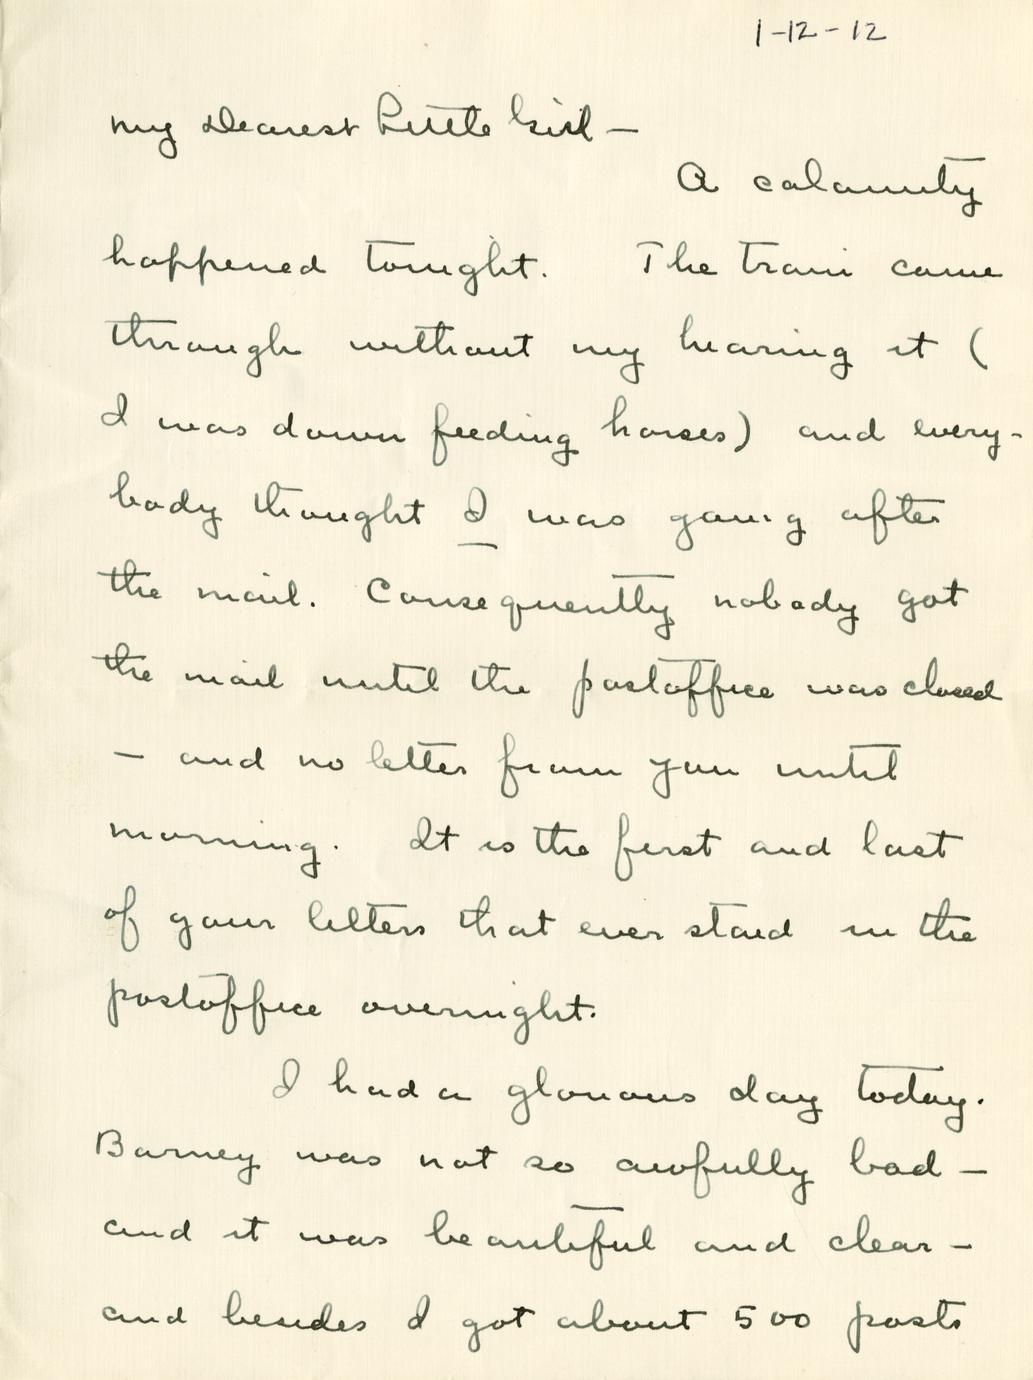 1-12-12
My Dearest Little Girl —
A calamity
happened tonight. The train came
through without my hearing it (
I was down feeding horses) and every-
body thought I was going after
the mail. Consequently nobody got
the mail until the postoffice was closed
— and no letter from you until
morning. It is the first and last
of your letters that ever staid in the
postoffice overnight.
I had a glorious day today.
Barney was not so awfully bad —
and it was beautiful and clear —
and besides I got about 500 posts